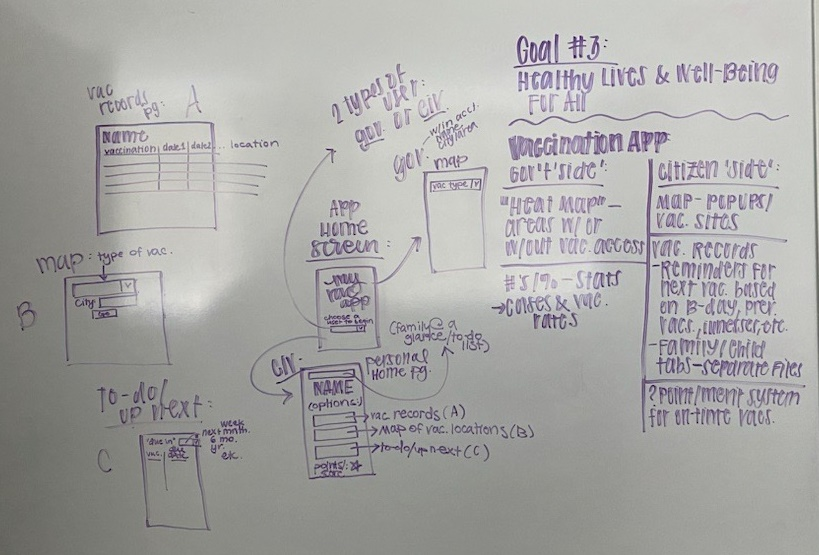 vac
records
pg:
A
NAME
vaccination | date1 | date2 ... location
map: type of vac.
B
City:
To-do/
up next:
C
"due in"
week
next mnth.
6 mo.
yr.
etc.
vac.
2 types of
user:
gov. or civ.
w/in acct.
city/area
gov.
map
vac type
App
Home
Screen:
my
vac
app
choose a
user to begin
civ.
(family @ a
glance/to-do
list)
personal
Home pg:
NAME
(options)
vac records (A)
Map of vac. locations (B)
to-do/up next (C)
points: ☆
Goal #3:
Healthy Lives & Well-Being
For All
Vaccination App:
Gov't "side":
"Heat Map" –
areas w/ or
w/out vac. access
#'s/% – Stats
→ cases & vac.
rates
Citizen "side":
Map – Popups/
vac. sites
Vac. Records
- Reminders for
next vac. based
on B-day, prev.
vacs, illnesses, etc.
- Family/Child
tabs – separate files
? point/ment system
for on-time vacs.